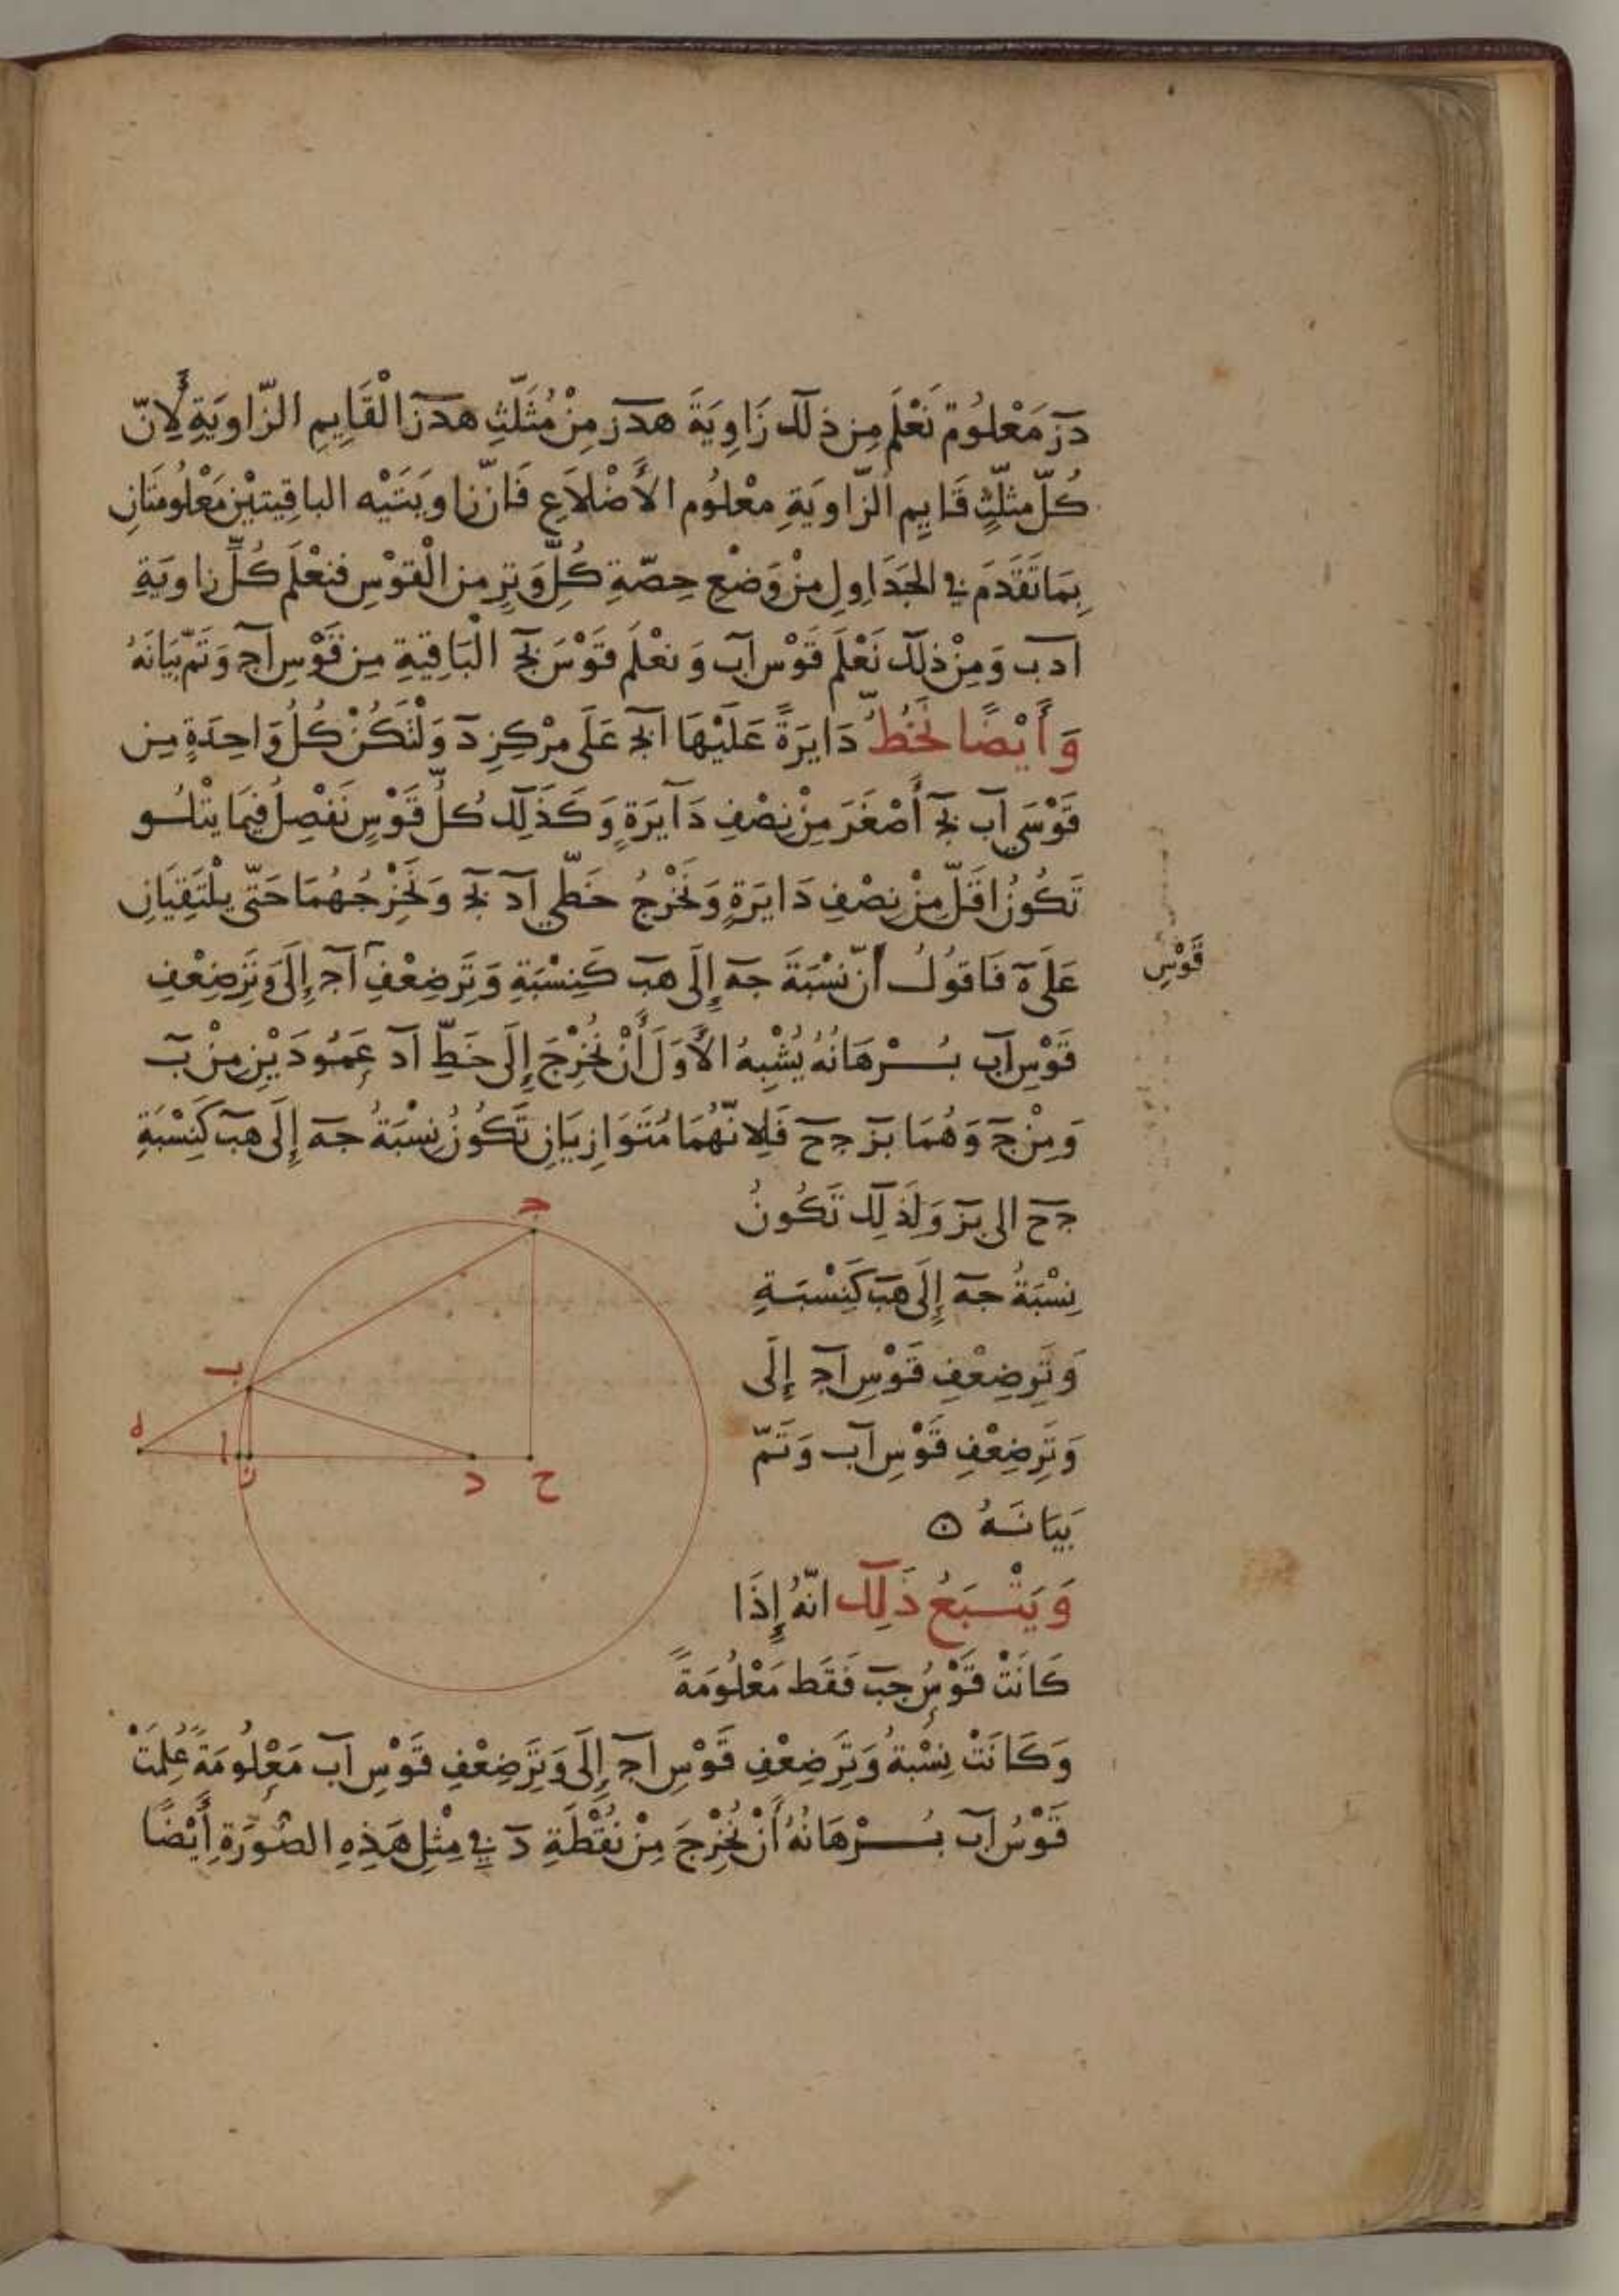 دز مَعْلُوم نَعْلَم مِن ذلك زَاوِيَةَ هدز مِنْ مُثَلَّثِ هدز الْقَايِمِ الزَّاوِيَةِ لِأَنّ
كُلّ مثلّثٍ قَايِمِ الزَّاوِيَةِ معْلُوم الأَضْلاَعِ فَانّ زاوِيَتَيْه الباقِيتيْن مَعْلُومَتَانِ
بِمَا تَقَدَمَ في الجَدَاوِلِ مِنْ وَضْعِ حِصّةِ كُلِّ وَترٍ من الْقوْسِ فنعْلَم كُلّ زاوِيَةِ
ادب وَمِنْ ذلكَ نَعْلَم قَوْس اب وَنعْلَم قَوْسَ بج الْبَاقِيةِ مِن قَوْسِ اج وَتَمّ بَيَانَهُ
وَأَيْضًا نَخُطُّ دَايرَةً عَلَيْهَا ابج عَلَى مرْكِزِ د وَلْتَكُنْ كُلُ وَاحِدَةٍ مِن
قَوْسَي اب بج أَصْغَرَ مِنْ نِصْفِ دَايَرَةٍ وَكَذَلِكَ كُلُّ قَوْسٍ نَفْصِلُ فِيمَا يتْلُو
تَكُونُ اقَلّ مِنْ نِصْفِ دَايَرَةٍ وَنُخْرِجُ خَطَّي اد بج وَنُخْرِجُهُمَا حَتّى يلْتَقِيَانِ
عَلَى ه فَاقولُ أنّ نسْبَةَ جه إِلَى هب كَنِسْبَةِ وَتَرِ ضِعْفِ اج إِلَى وَتَرِ ضِعْفِ
قَوْسِ
قَوْسِ اب بُرْهَانُهُ يُشْبِهُ الأَوَلَ أَنْ نُخْرِجَ إِلَى خَطِّ اد عَمُودَيْنِ مِنْ ب
وَمِنْ ج وَهُمَا بز جح فَلِانّهُمَا مُتَوَازِيَانِ تَكُونُ نِسْبَةُ جه إِلَى هب كَنِسْبَةِ
جح الى بز وَلِذلِكَ تَكُونُ
نِسْبَةُ جه إِلَى هب كَنِسْبَةِ
وَتَرِ ضِعْفِ قَوْسِ اج إِلَى
وَتَرِ ضِعْفِ قَوْسِ اب وَتَمّ
بَيَانَهُ
وَيَتْبَعُ ذَلِكَ انّهُ إِذَا
كَانَتْ قَوْسُ جب فَقَط مَعْلُومَةً
وَكَانَتْ نِسْبةُ وَتَرِ ضِعْفِ قَوْسِ اج إِلَى وَتَرِ ضِعْفِ قَوْسِ اب مَعْلُومَةً عُلِمَتْ
قَوْسُ اب بُرْهَانُهُ أَنْ نُخْرِجَ مِنْ نُقْطَةِ د فِي مِثْلِ هَذِهِ الصُّورَةِ أَيْضًا
ج
ب
ه
ا
ز
د
ح